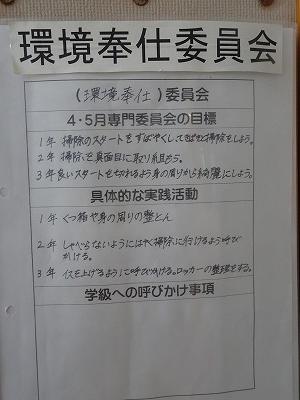 環境奉仕委員会
(環境奉仕)委員会
4・5月専門委員会の目標
1年 掃除のスタートをすばやくしててきぱきと掃除をしよう。
2年 掃除を真面目に取り組もう。
3年 良いスタートを切れるよう身の周りから綺麗にしよう。
具体的な実践活動
1年 くつ箱や身の周りの整とん
2年 しゃべらないようにはやく掃除に行けるよう呼び
かける。
3年 イスを上げるように呼びかける。ロッカーの整理をする。
学級への呼びかけ事項